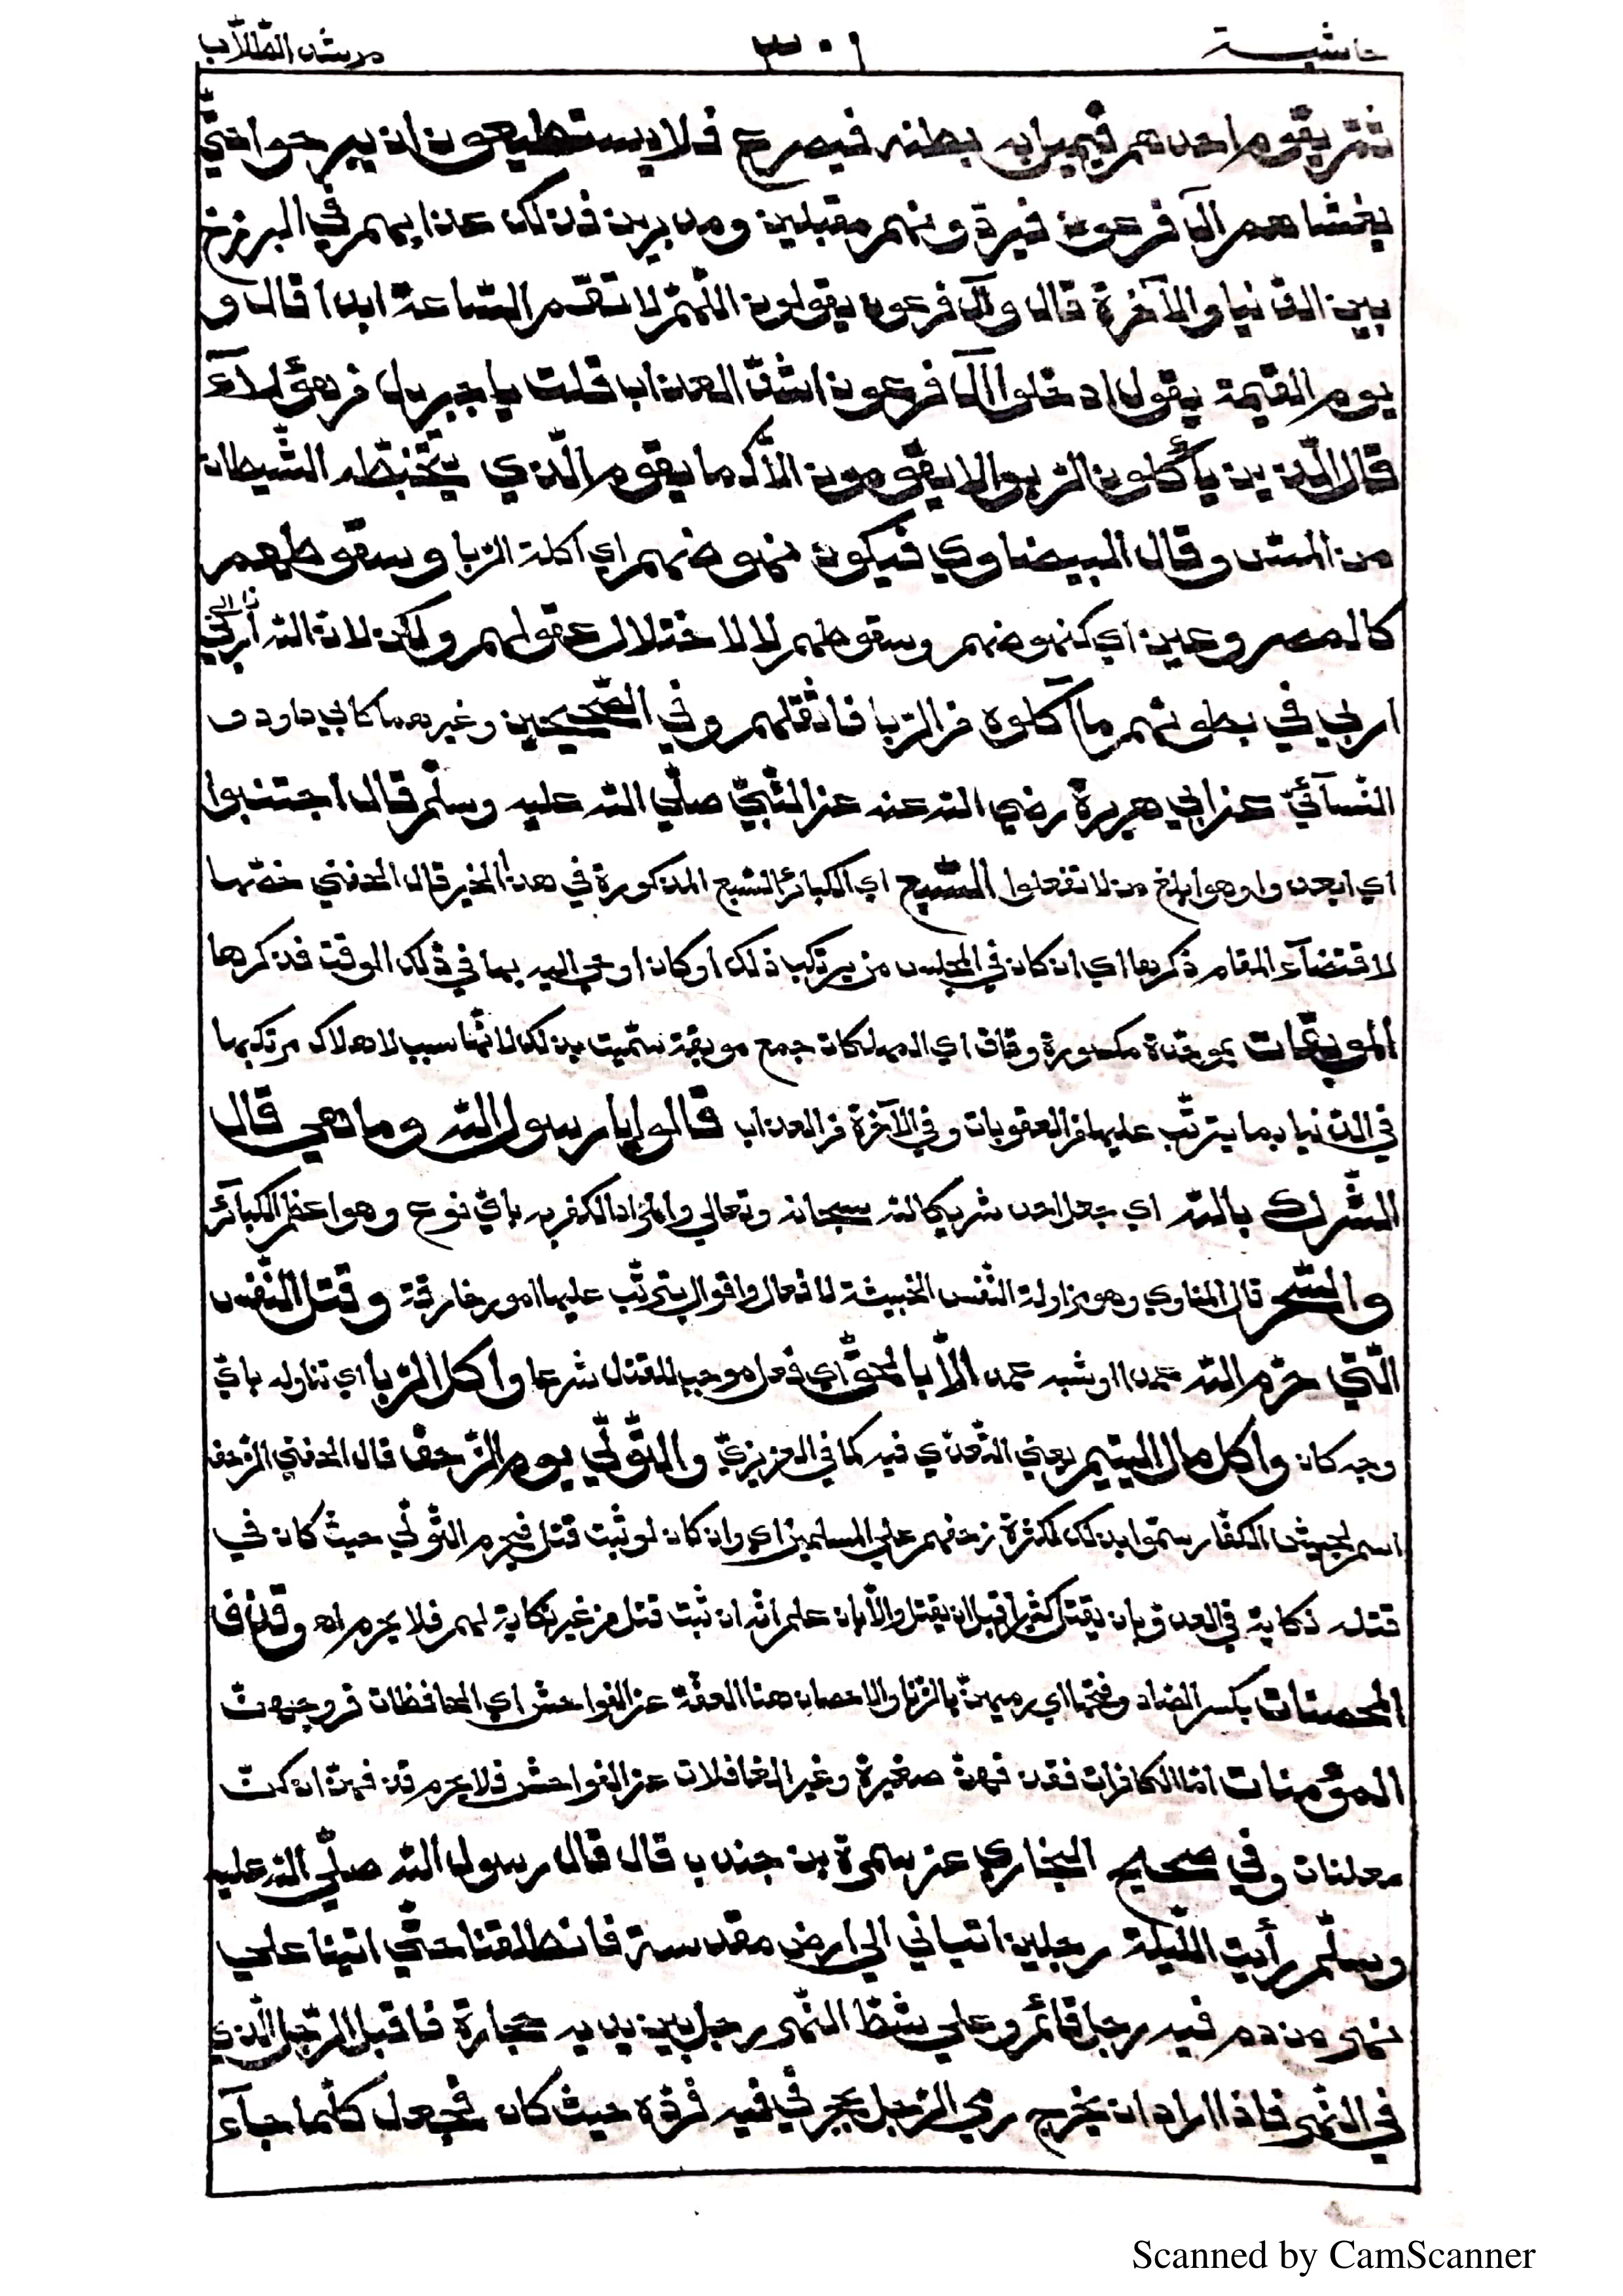 حاشية ٣٠١ مرشد الطلاب
ثمّ يقوم احدهم فيميل به بطنه فيصرع فلا يستطيعون ان يبرحوا حتّي
يغشاهم آل فرعون فيردونهم مقبلين ومدبرين فذلك عذابهم في البرزخ
بين الدّنيا والآخرة قال وآل فرعون يقولون اللّهمّ لا تقم السّاعة ابدا قال و
يوم القيمة يقول ادخلوا آل فرعون اشدّ العذاب قلت يا جبريل من هؤلآء
قال الّذين يأكلون الرّبوا لا يقومون الّا كما يقوم الّذي يتخبّطه الشّيطان
من المسّ وقال البيضاوي فيكون نهوضهم اي اكلة الرّبا وسقوطهم
كالمصروعين اي كنهوضهم وسقوطهم لا لاختلال عقولهم ولكن لانّ الله أربي
اربي في بطونهم ما آكلوه من الرّبا فاثقلهم وفي الصّحيحين وغيرهما كابي داود و
النّسآئيّ عن ابي هريرة رضي الله عنه عن النّبيّ صلّي الله عليه وسلّم قال اجتنبوا
اي ابعدوا وهو ابلغ من لا تفعلوا السّبع اي الكبائر السّبع المذكورة في هذا الخبر قال الحفني خصّها
لاقتضآء المقام ذكرها اي ان كان في المجلس من يرتكب ذلك او كان اوحي اليه بها في ذلك الوقت فذكرها
الموبقات بموحّدة مكسورة وقاف اي المهلكات جمع موبقة سمّيت بذلك لانّها سبب لاهلاك مرتكبها
في الدّنيا بما يترتّب عليها من العقوبات وفي الآخرة من العذاب قالوا يا رسول الله وما هي قال
الشّرك بالله اي جعل احد شريكا لله سبحانه وتعالي والمراد الكفر به بايّ نوع وهو اعظم الكبآئر
والسّحر قال المناوي وهو مزاولة النّفس الخبيثة لافعال واقوال يترتّب عليها امور خارقة وقتل النّفس
الّتي حرّم الله عمدا او شبه عمد الّا بالحقّ اي فعل موجب للقتل شرعا واكل الرّبا اي تناوله بايّ
وجه كان واكل مال اليتيم يعني التّعدّي فيه كما في العزيزيّ والتّولّي يوم الزّحف قال الحفني الزّحف
اسم لجيش الكفّار سمّوا بذلك لكثرة زحفهم علي المسلمين اي وان كان لو ثبت قتل فيحرم التّولّي حيث كان في
قتله نكاية في العدوّ بان يقتل كثيرا قبل ان يقتل والّا بان علم انّه ان ثبت قتل من غير نكاية لهم فلا يحرم اه وقذف
المحصنات بكسر الصّاد وفتحها اي رميهنّ بالزّنا والاحصان هنا العفّة عن الفواحش اي الحافظات فروجهنّ
المؤمنات امّا الكافرات فقذفهنّ صغيرة وغير الغافلات عن الفواحش فلا يحرم قذفهنّ ان كنّ
معلنات وفي صحيح البخاري عن سمرة بن جندب قال قال رسول الله صلّي الله عليه
وسلّم رأيت اللّيلة رجلين اتياني الي ارض مقدسة فانطلقنا حتّي اتينا علي
نهر من دم فيه رجل قائم وعلي شطّ النّهر رجل بين يديه حجارة فاقبل الرّجل الّذي
في النّهر فاذا اراد ان يخرج رمي الرّجل بحجر في فيه فردّه حيث كان فجعل كلّما جآء
Scanned by CamScanner